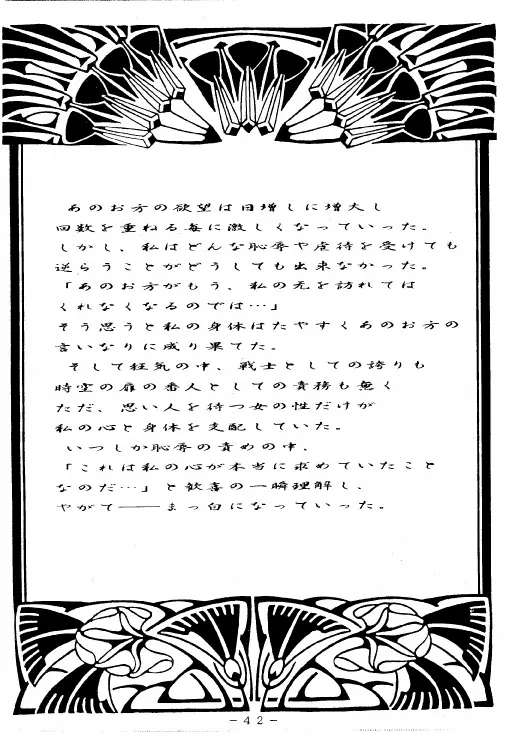 あのお方の欲望は日増しに増大し
回数を重ねる毎に激しくなっていった。
しかし、私はどんな恥辱や虐待を受けても
逆らうことがどうしても出来なかった。
「あのお方がもう、私の元を訪れては
くれなくなるのでは…」
そう思うと私の身体はたやすくあのお方の
言いなりに成り果てた。
そして狂気の中、戦士としての誇りも
時空の扉の番人としての責務も無く
ただ、思い人を待つ女の性だけが
私の心と身体を支配していた。
いつしか恥辱の責めの中、
「これは私の心が本当に求めていたこと
なのだ…」と歓喜の一瞬理解し、
やがて――まっ白になっていった。
－42－